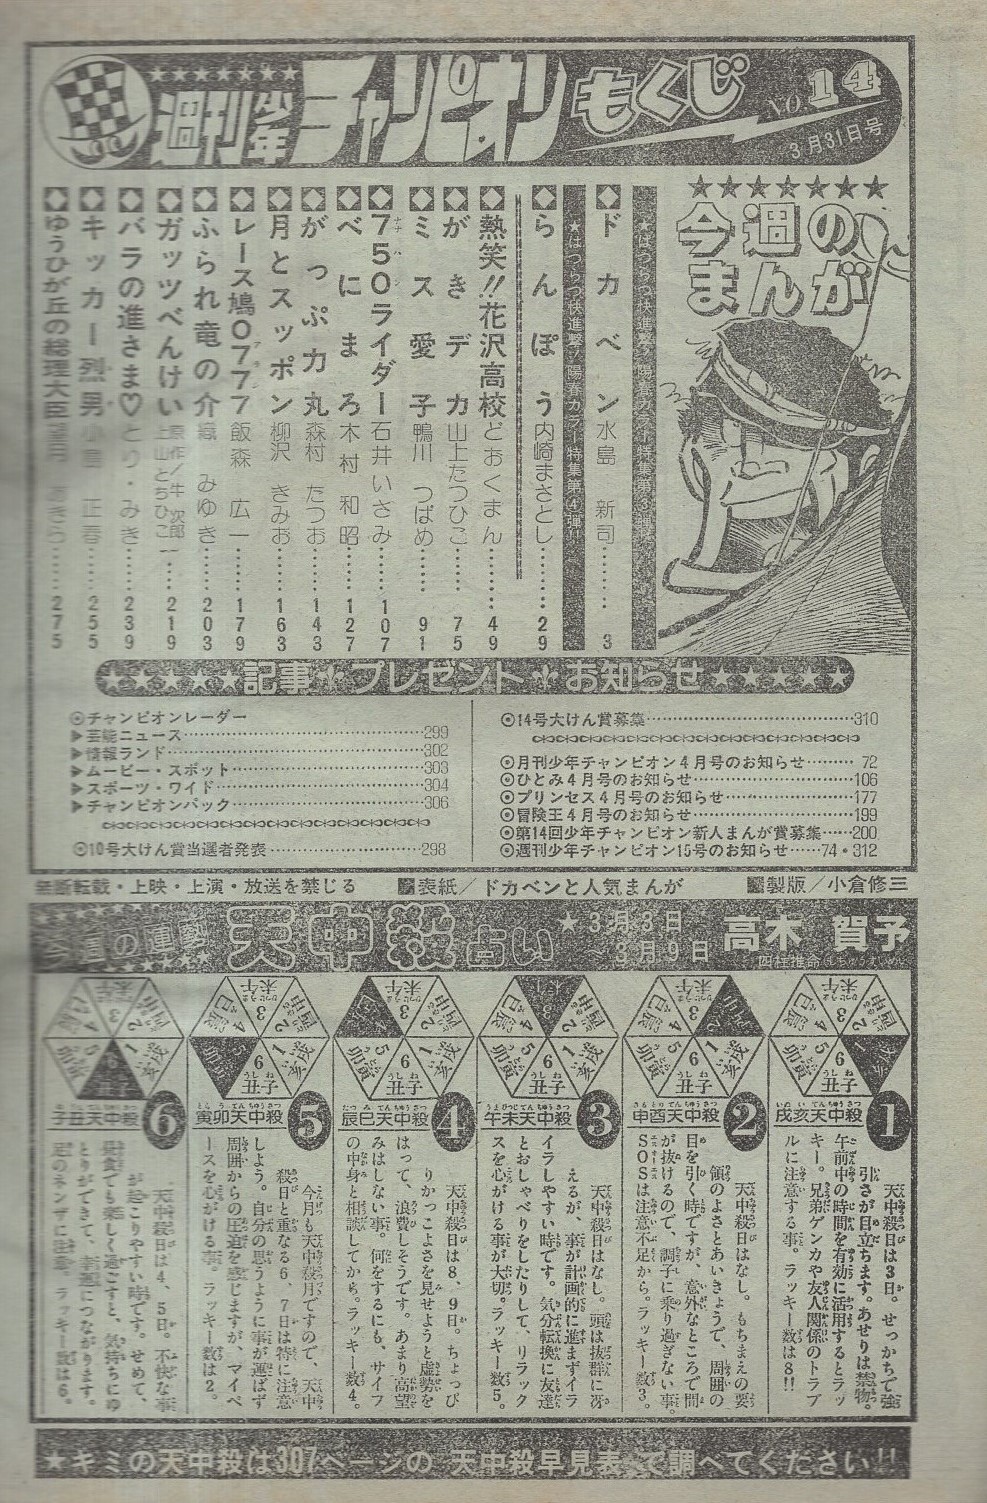 週刊少年チャンピオンもくじ
NO.14
3月31日号
今週のまんが
★はつらつ快進撃!陽春カラー特集第③弾!!
ドカベン 水島新司……3
★はつらつ快進撃!陽春カラー特集第④弾!!
らんぽう 内崎まさとし……29
熱笑!!花沢高校 どおくまん……49
がきデカ 山上たつひこ……75
ミス愛子 鴨川つばめ……91
750ライダー 石井いさみ……107
べにまろ 木村和昭……127
がっぷ力丸 森村たつお……143
月とスッポン 柳沢きみお……163
レース鳩0777 飯森広一……179
ふられ竜の介 織みゆき……203
ガッツべんけい 原作/牛次郎 上山とちひこ……219
バラの進さま♡ とり・みき……239
キッカー烈男 小島正春……255
ゆうひが丘の総理大臣 望月あきら……275
記事 プレゼント お知らせ
◎チャンピオンレーダー
▶芸能ニュース……299
▶情報ランド……302
▶ムービー・スポット……303
▶スポーツ・ワイド……304
▶チャンピオンパック……306
◎10号大けん賞当選者発表……298
◎14号大けん賞募集……310
◎月刊少年チャンピオン4月号のお知らせ……72
◎ひとみ4月号のお知らせ……106
◎プリンセス4月号のお知らせ……177
◎冒険王4月号のお知らせ……199
◎第14回少年チャンピオン新人まんが賞募集……200
◎週刊少年チャンピオン15号のお知らせ……74・312
無断転載・上映・上演・放送を禁じる
表紙/ドカベンと人気まんが
製版/小倉修三
今週の運勢 天中殺占い
★3月3日～3月9日
高木賀予
四柱推命
1
戌亥天中殺
天中殺日は3日。せっかちで強
引さが目立ちます。あせりは禁物。
午前中の時間を有効に活用するとラッ
キー。兄弟ゲンカや友人関係のトラブ
ルに注意する事。ラッキー数は8!!
2
申酉天中殺
天中殺日はなし。もちまえの要
領のよさとあいきょうで、周囲の
目を引く時ですが、意外なところで間
が抜けるので、調子に乗り過ぎない事。
SOSは注意不足から。ラッキー数3。
3
午未天中殺
天中殺日はなし。頭は抜群に冴
えるが、事が計画的に進まずイラ
イラしやすい時です。気分転換に友達
とおしゃべりをしたりして、リラック
スを心がける事が大切。ラッキー数5。
4
辰巳天中殺
天中殺日は8、9日。ちょっぴ
りかっこよさを見せようと虚勢を
はって、浪費しそうです。あまり高望
みはしない事。何をするにも、サイフ
の中身と相談してから。ラッキー数4。
5
寅卯天中殺
今月も天中殺月ですので、天中
殺日と重なる6、7日は特に注意
しよう。自分の思うように事が運ばず
周囲からの圧迫を感じますが、マイペ
ースを心がける事。ラッキー数は2。
6
子丑天中殺
天中殺日は4、5日。不快な事
が起こりやすい時です。せめて、
昼食でも楽しく過ごすと、気持ちにゆ
とりができて、幸運につながります。
足のネンザに注意。ラッキー数は6。
★キミの天中殺は307ページの 天中殺早見表 で調べてください!!